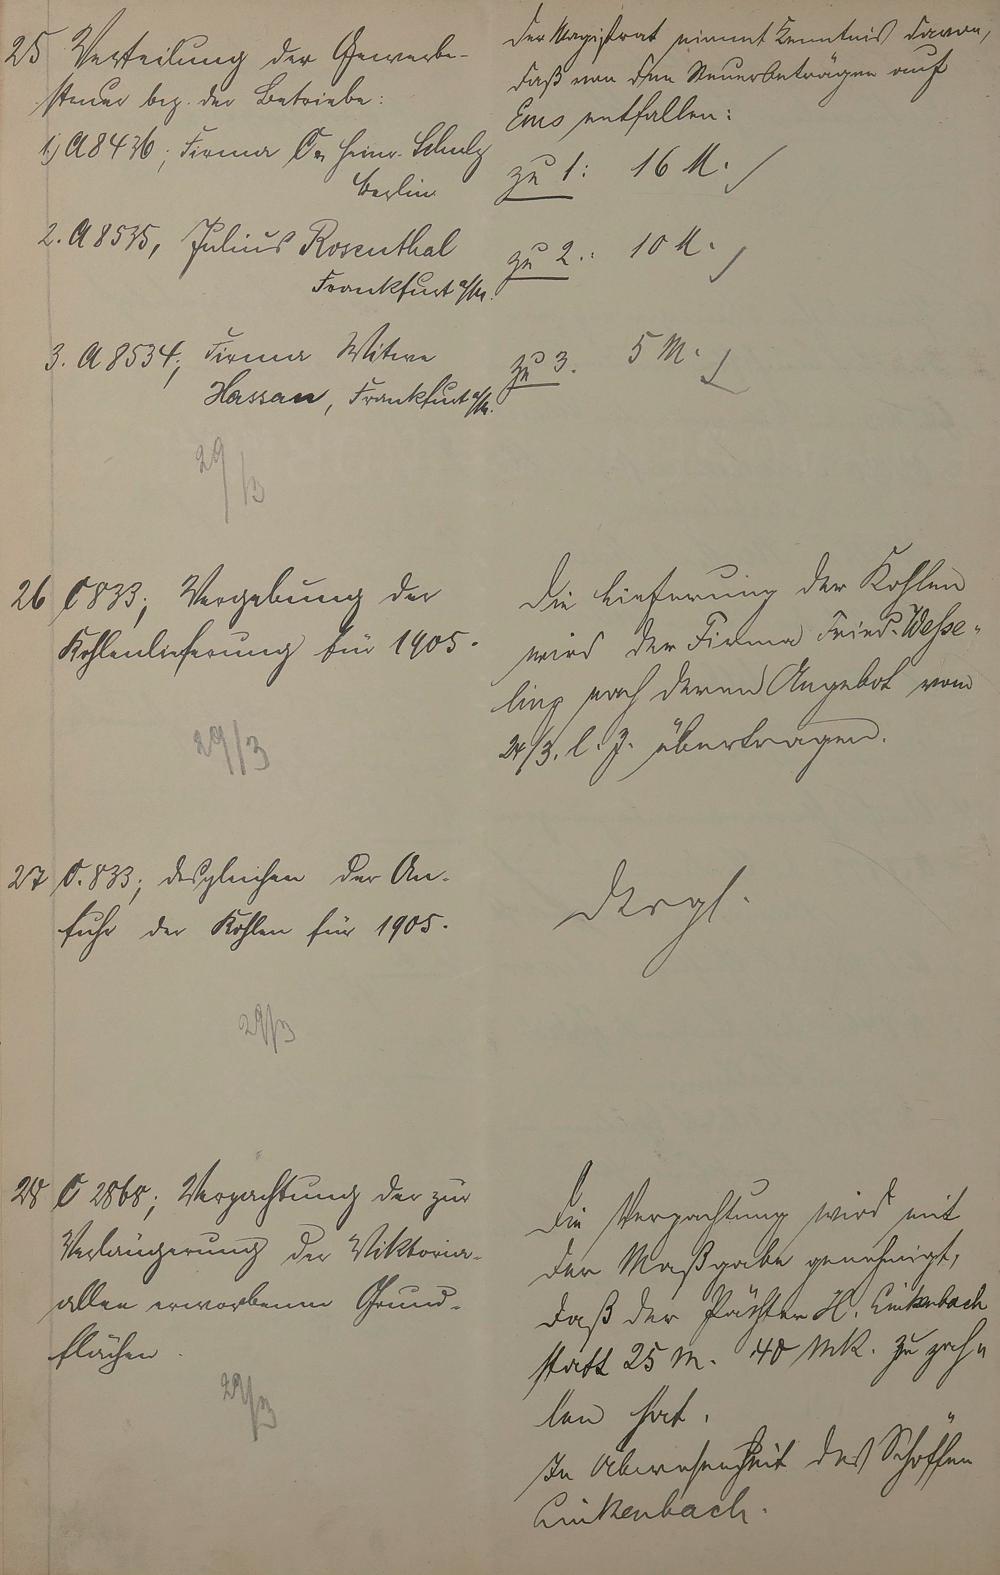 25 Verteilung der Gewerbe-
steuer bez. der Betriebe:
1) A 8436; Firma Dr. Heinr. Schulz
Berlin
2. A 8535, Julius Rosenthal
Frankfurt a/M.
3. A 8534; Firma Witwe
Hassan, Frankfurt a/M.
29/3
Der Magistrat nimmt Kenntnis davon,
daß von den Steuerbeträgen auf
Ems entfallen:
zu 1: 16 M.
zu 2.: 10 M.
zu 3. 5 M.
26 C 833; Vergebung der
Kohlenlieferung für 1905.
29/3
Die Lieferung der Kohlen
wird der Firma Fried. Wesse-
ling nach deren Angebot vom
24/3. l. J. übertragen.
27 C. 833; desgleichen der An-
fuhr der Kohlen für 1905.
29/3
Desgl.
28 C 2868; Verpachtung der zur
Verlängerung der Viktoria-
allee erworbenen Grund-
flächen.
29/3
Die Verpachtung wird mit
der Maßgabe genehmigt,
daß der Pächter H. Linkenbach
statt 25 M. 40 Mk. zu zah-
len hat.
In Abwesenheit des Schöffen
Linkenbach.